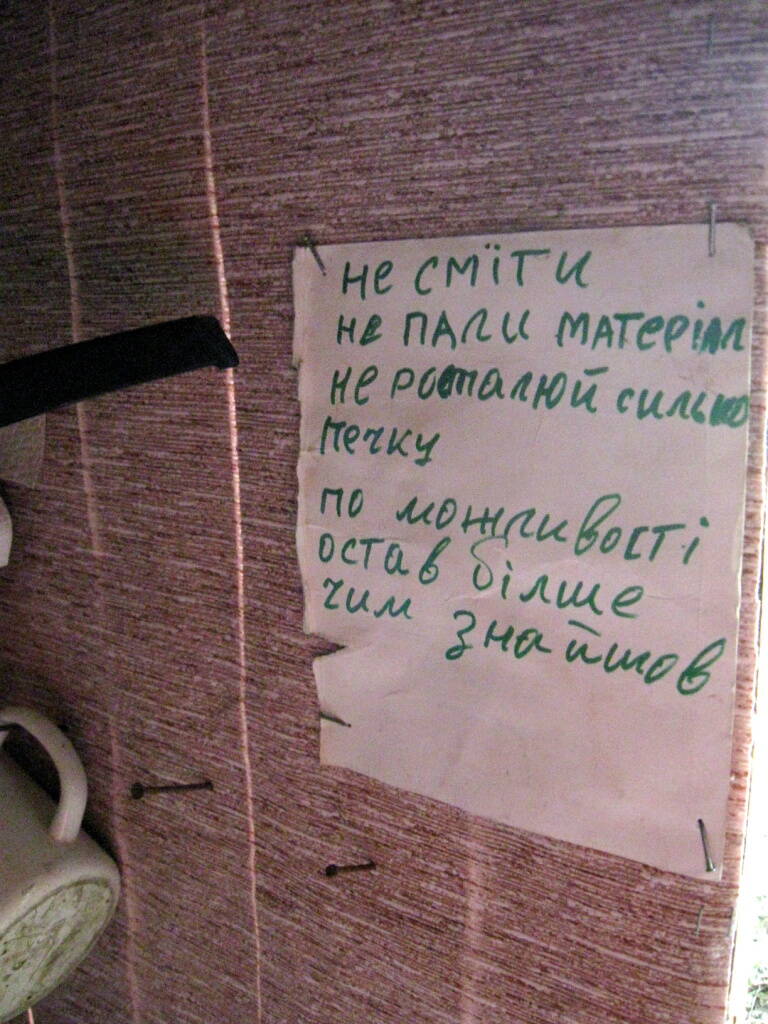 не смїти
не пали матеріал
не розпалюй сильно
печку
по можливості
остав білше
чим знайшов